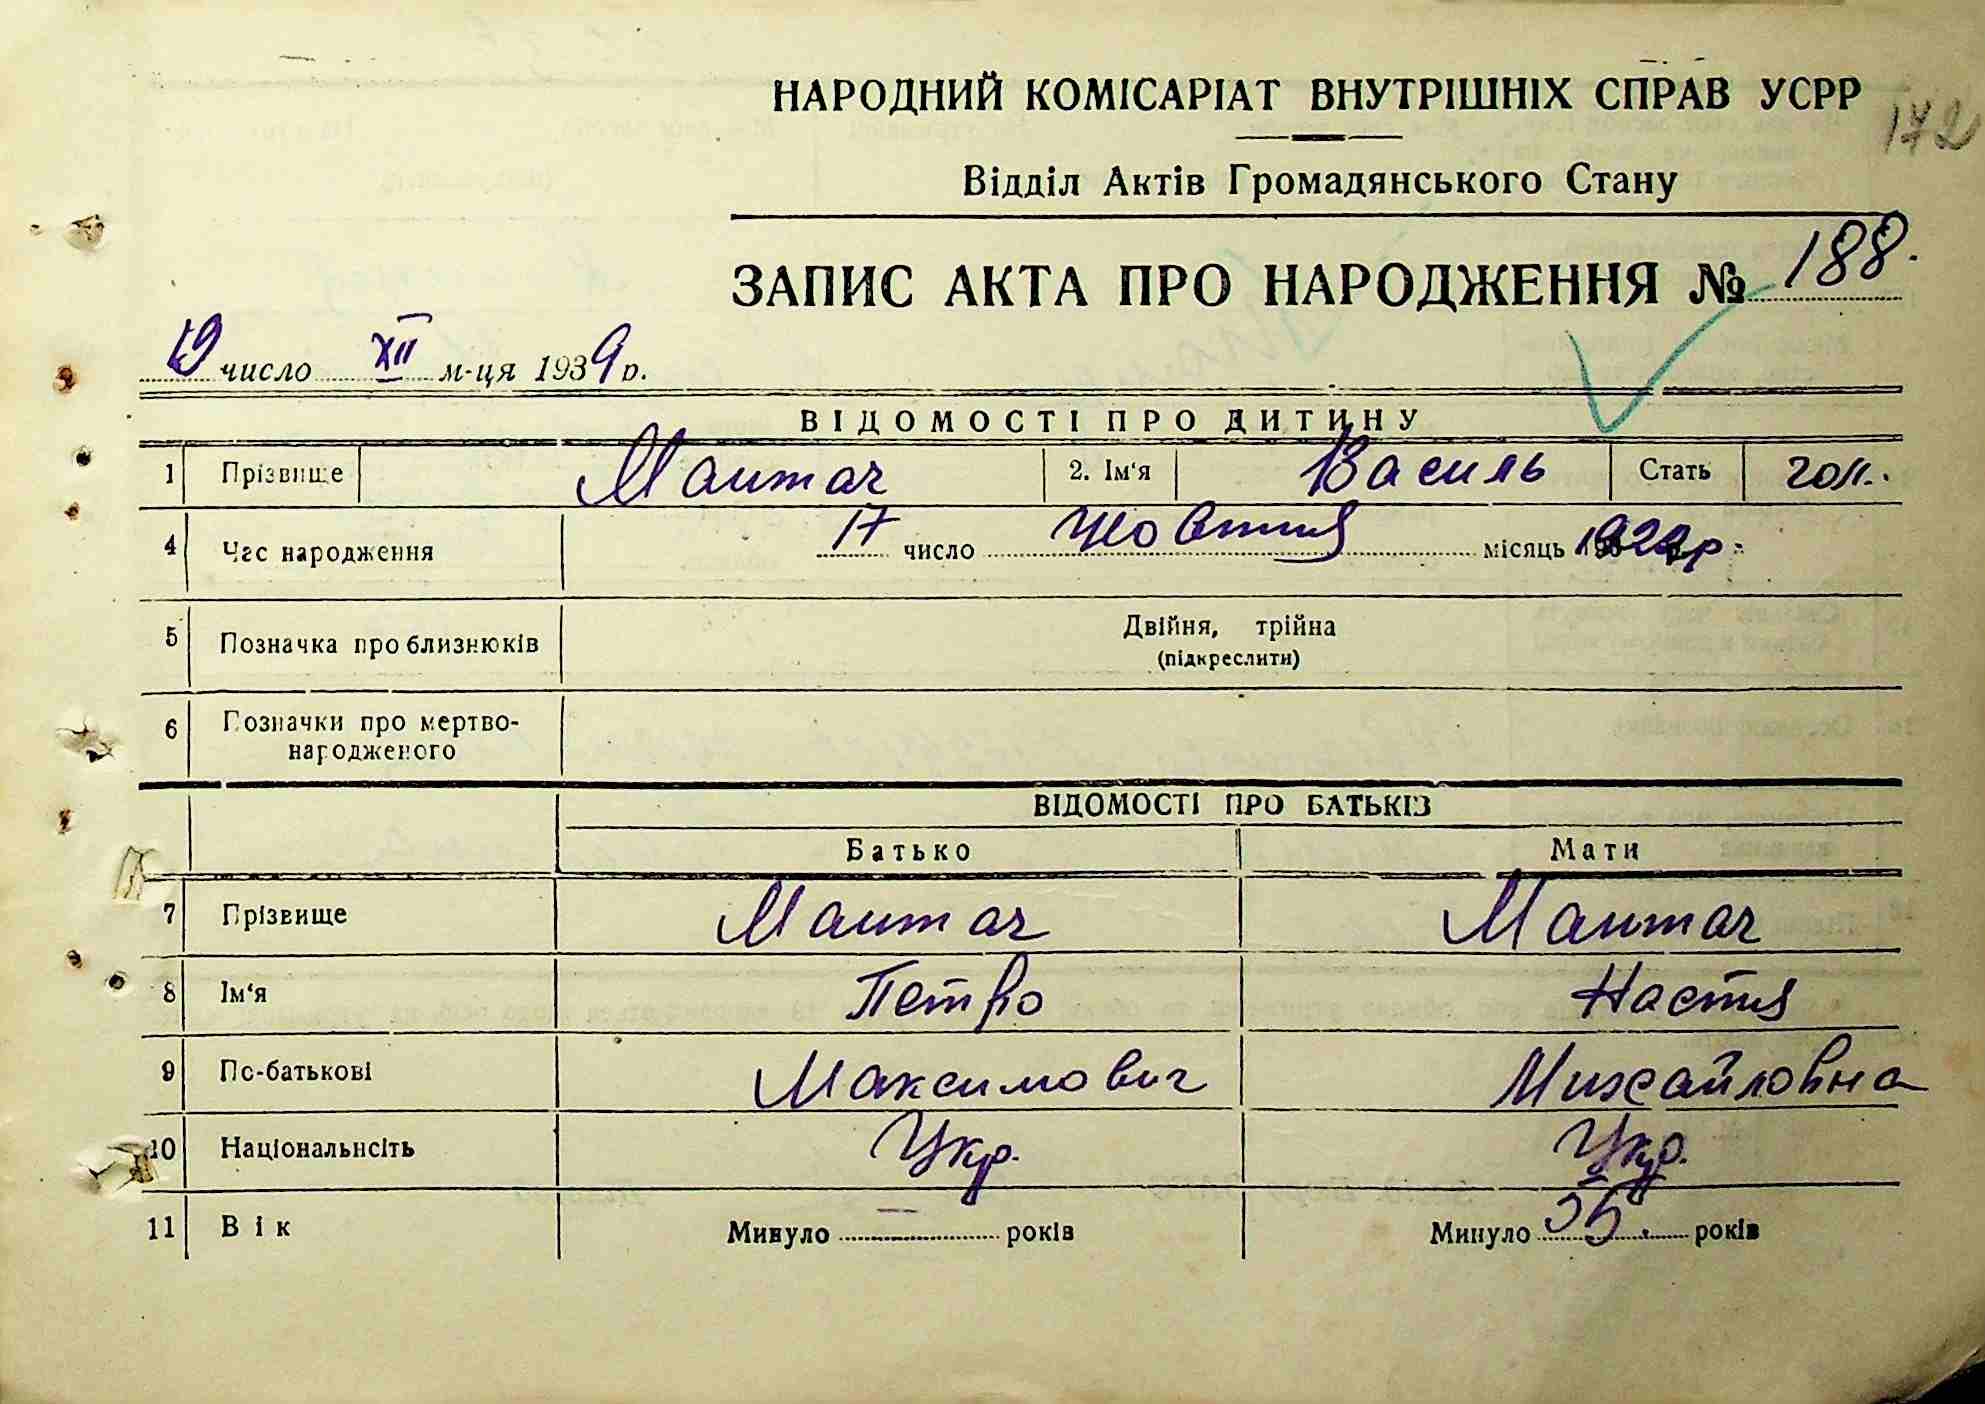 НАРОДНИЙ КОМІСАРІАТ ВНУТРІШНІХ СПРАВ УСРР
172
Відділ Актів Громадянського Стану
ЗАПИС АКТА ПРО НАРОДЖЕННЯ № 188.
19 число XII м-ця 1939 р.
ВІДОМОСТІ ПРО ДИТИНУ
1 Прізвище Мантач 2. Ім'я Василь Стать чол.
4 Час народження 17 число Жовтня місяць р.
5 Позначка про близнюків Двійня, трійна
(підкреслити)
6 Позначки про мертво-
народженого
ВІДОМОСТІ ПРО БАТЬКІВ
Батько Мати
7 Прізвище Мантач Мантач
8 Ім'я Петро Настя
9 По-батькові Максимович Михайловна
10 Національність Укр. Укр.
11 Вік Минуло — років Минуло 35 років